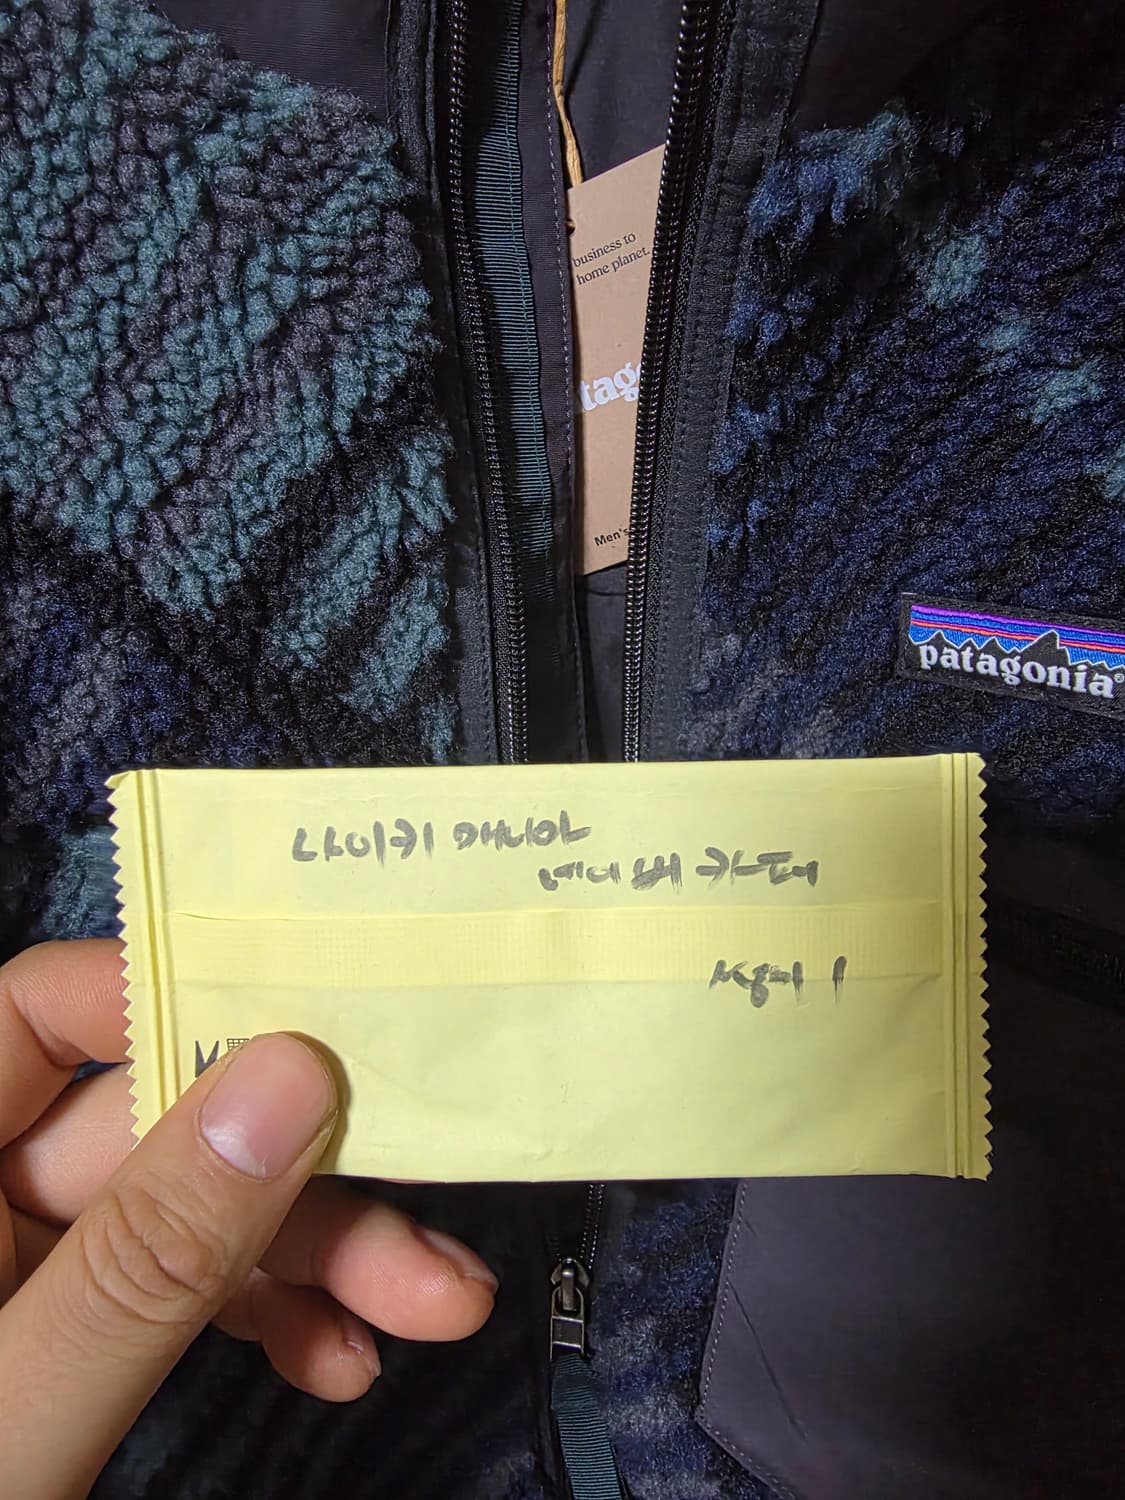 business to
home planet.
tago
Men's
patagonia®
나이키 매니아
네이버 카페
M